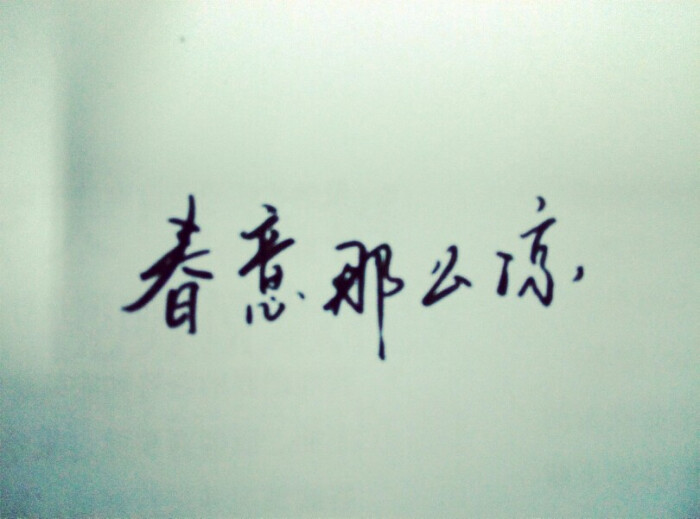 春意那么凉